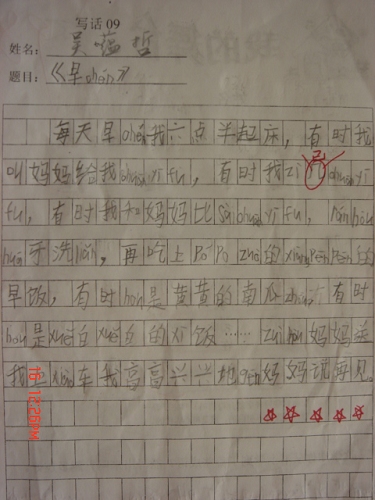 写话09
姓名：吴蕴哲
题目：《早chén》
每天早chén我六点半起床，有时我
叫妈妈给我chuān yī fu，有时我zì己chuān yī
fu，有时我和妈妈比sài chuān yī fu，rán hòu
shuā牙洗liǎn，再吃上pó po zuò的xiāng pēn pēn的
早饭，有时hou是黄黄的南瓜zhōu，有时
hou是xuě白xuě白的xī饭……zuì hòu妈妈送
我 车我高高兴兴地gēn妈妈说再见